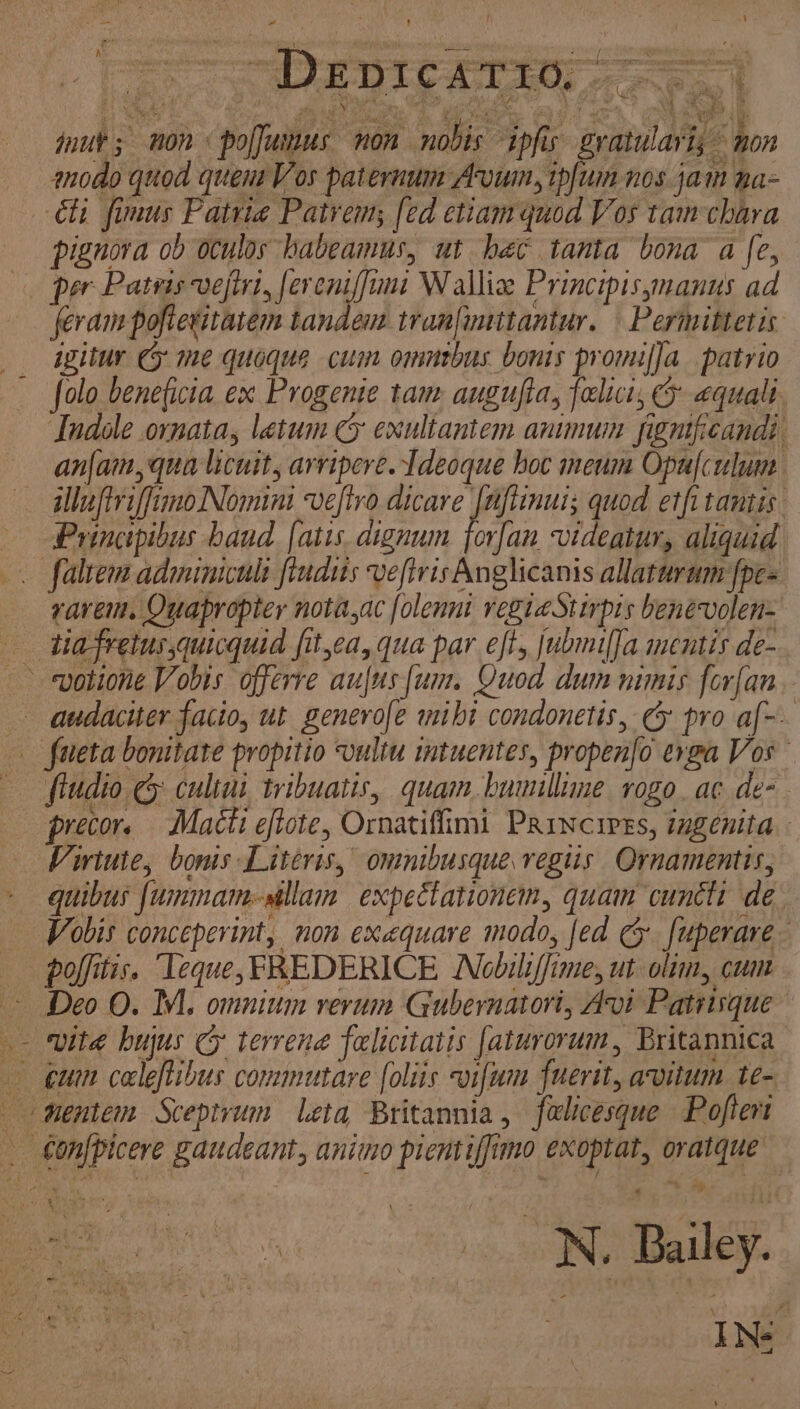 DEDICATIO.
inut; non possumus non nobis ipsis gratulari; non
modo quod quem Vos paternum Avum, ipsum nos jam na-
cti simus Patriæ Patrem; sed etiam quod Vos tam chara
pignora ob oculos habeamus, ut hæc tanta bona a se,
per Patris vestri, serenissimi Walliæ Principis, manus ad
seram posteritatem tandem transmittantur. Permittetis
igitur & me quoque cum omnibus bonis promissa patrio
solo beneficia ex Progenie tam augusta, felici, & æquali
Indole ornata, lætum & exultantem animum significandi
ansam, qua licuit, arripere. Ideoque hoc meum Opusculum
illustrissimo Nomini vestro dicare sustinui; quod etsi tantis
Principibus haud satis dignum forsan videatur, aliquid
saltem adminiculi studiis vestris Anglicanis allaturum spe-
rarem. Quapropter nota, ac solenni regiæ Stirpis benevolen-
tia fretus, quicquid sit, ea, qua par est, submissa mentis de-
votione Vobis offerre ausus sum. Quod dum nimis forsan
audaciter facio, ut generose mihi condonetis, & pro as-
sueta bonitate propitio vultu intuentes, propenso erga Vos
studio & cultui tribuatis, quam humillime rogo ac de-
precor. Macti estote, Ornatissimi PRINCIPES, ingenita
Virtute, bonis Literis, omnibusque regiis Ornamentis,
quibus summam illam expectationem, quam cuncti de
Vobis conceperint, non exæquare modo, sed & superare
possitis. Teque, FREDERICE Nobilissime, ut olim, cum
Deo O. M. omnium rerum Gubernatori, Avi Patrisque
vitæ hujus & terrenæ felicitatis saturorum, Britannica
cum cælestibus commutare soliis visum fuerit, avitum te-
nentem Sceptrum læta Britannia, felicesque Posteri
conspicere gaudeant, animo pientissimo exoptat, oratque
N. Bailey.
IN-